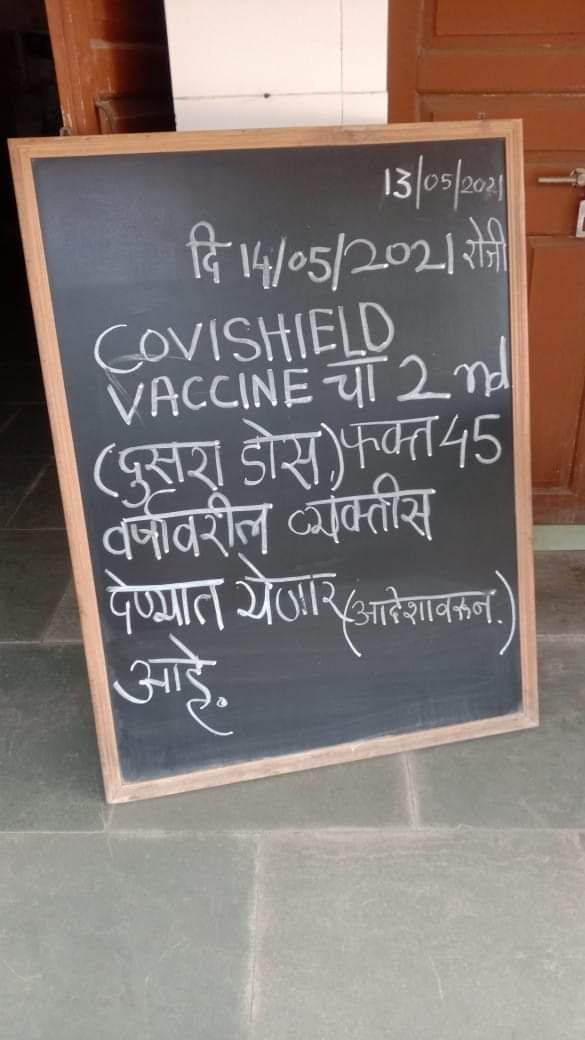 13/05/2021
दि 14/05/2021 रोजी
COVISHIELD
VACCINE चा 2nd
(दुसरा डोस.) फक्त 45
वर्षावरील व्यक्तीस
देण्यात येणार (आदेशावरून.)
आहे.